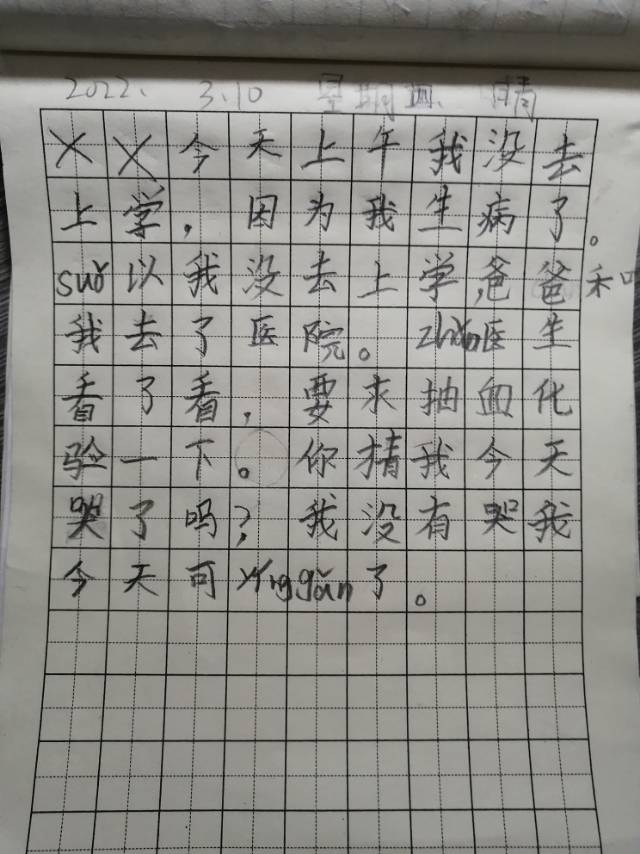 2022. 3.10 星期四 晴
××今天上午我没去
上学，因为我生病了。
suǒ以我没去上学，爸爸和
我去了医院。医生
看了看，要求抽血化
验一下。你猜我今天
哭了吗？我没有哭我
今天可yǐnggǎn了。